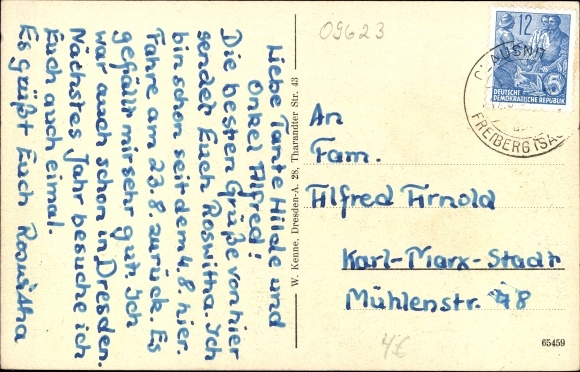 Liebe Tante Hilde und
Onkel Alfred!
Die besten Grüße von hier
sendet Euch Roswitha. Ich
bin schon seit dem 4.8. hier.
Fahre am 23.8. zurück. Es
gefällt mir sehr gut. Ich
war auch schon in Dresden.
Nächstes Jahr besuche ich
Euch auch eimal.
Es grüßt Euch Roswitha
W. Kenne, Dresden-A. 28, Tharandter Str. 43
09623
12
DEUTSCHE
DEMOKRATISCHE REPUBLIK
CLAUSNI
FREIBERG (SA
An
Fam.
Alfred Arnold
Karl-Marx-Stadt
Mühlenstr. 48
4€
65459